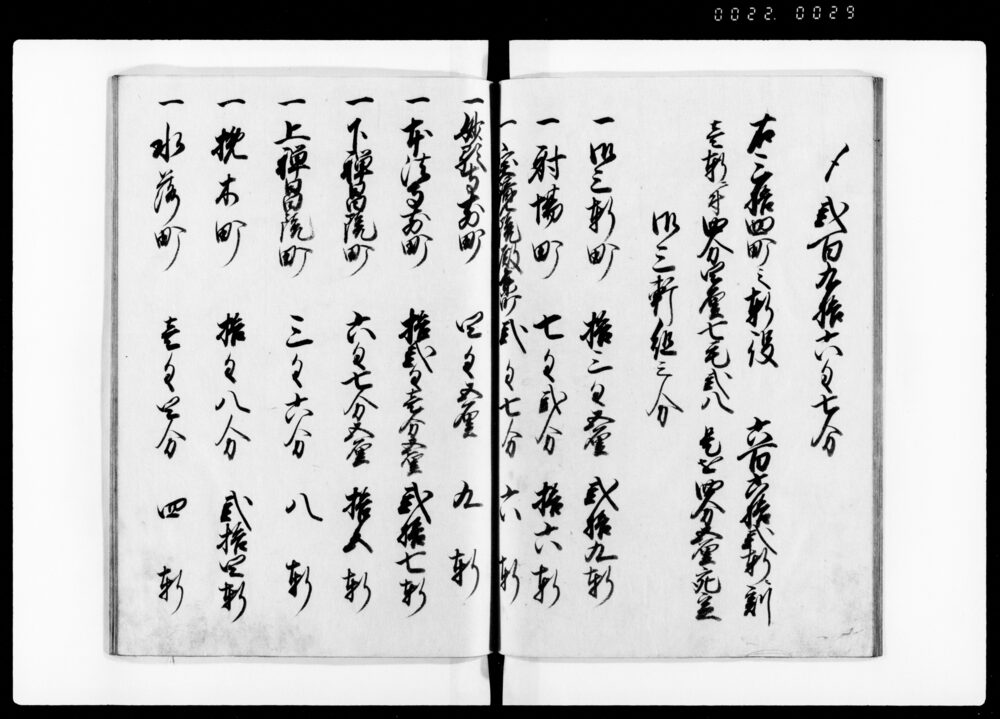 0022. 0029
〆弐百九拾六匁七分
右三拾四町之軒役 六百六拾弐軒ニ割
壱軒ニ付四分四厘七毛弐八 是を四分五厘宛
御三軒組之分
一御三軒町 拾三匁五厘 弐拾九軒
一射場町 七匁弐分 拾六軒
一宝 院殿 町 弐匁七分 六軒
一妙顕寺前町 四匁五厘 九軒
一本法寺前町 拾弐匁壱分五厘 弐拾七軒
一下禅昌院町 六匁七分五厘 拾五軒
一上禅昌院町 三匁六分 八軒
一挽木町 拾匁八分 弐拾四軒
一水落町 壱匁 分 四軒